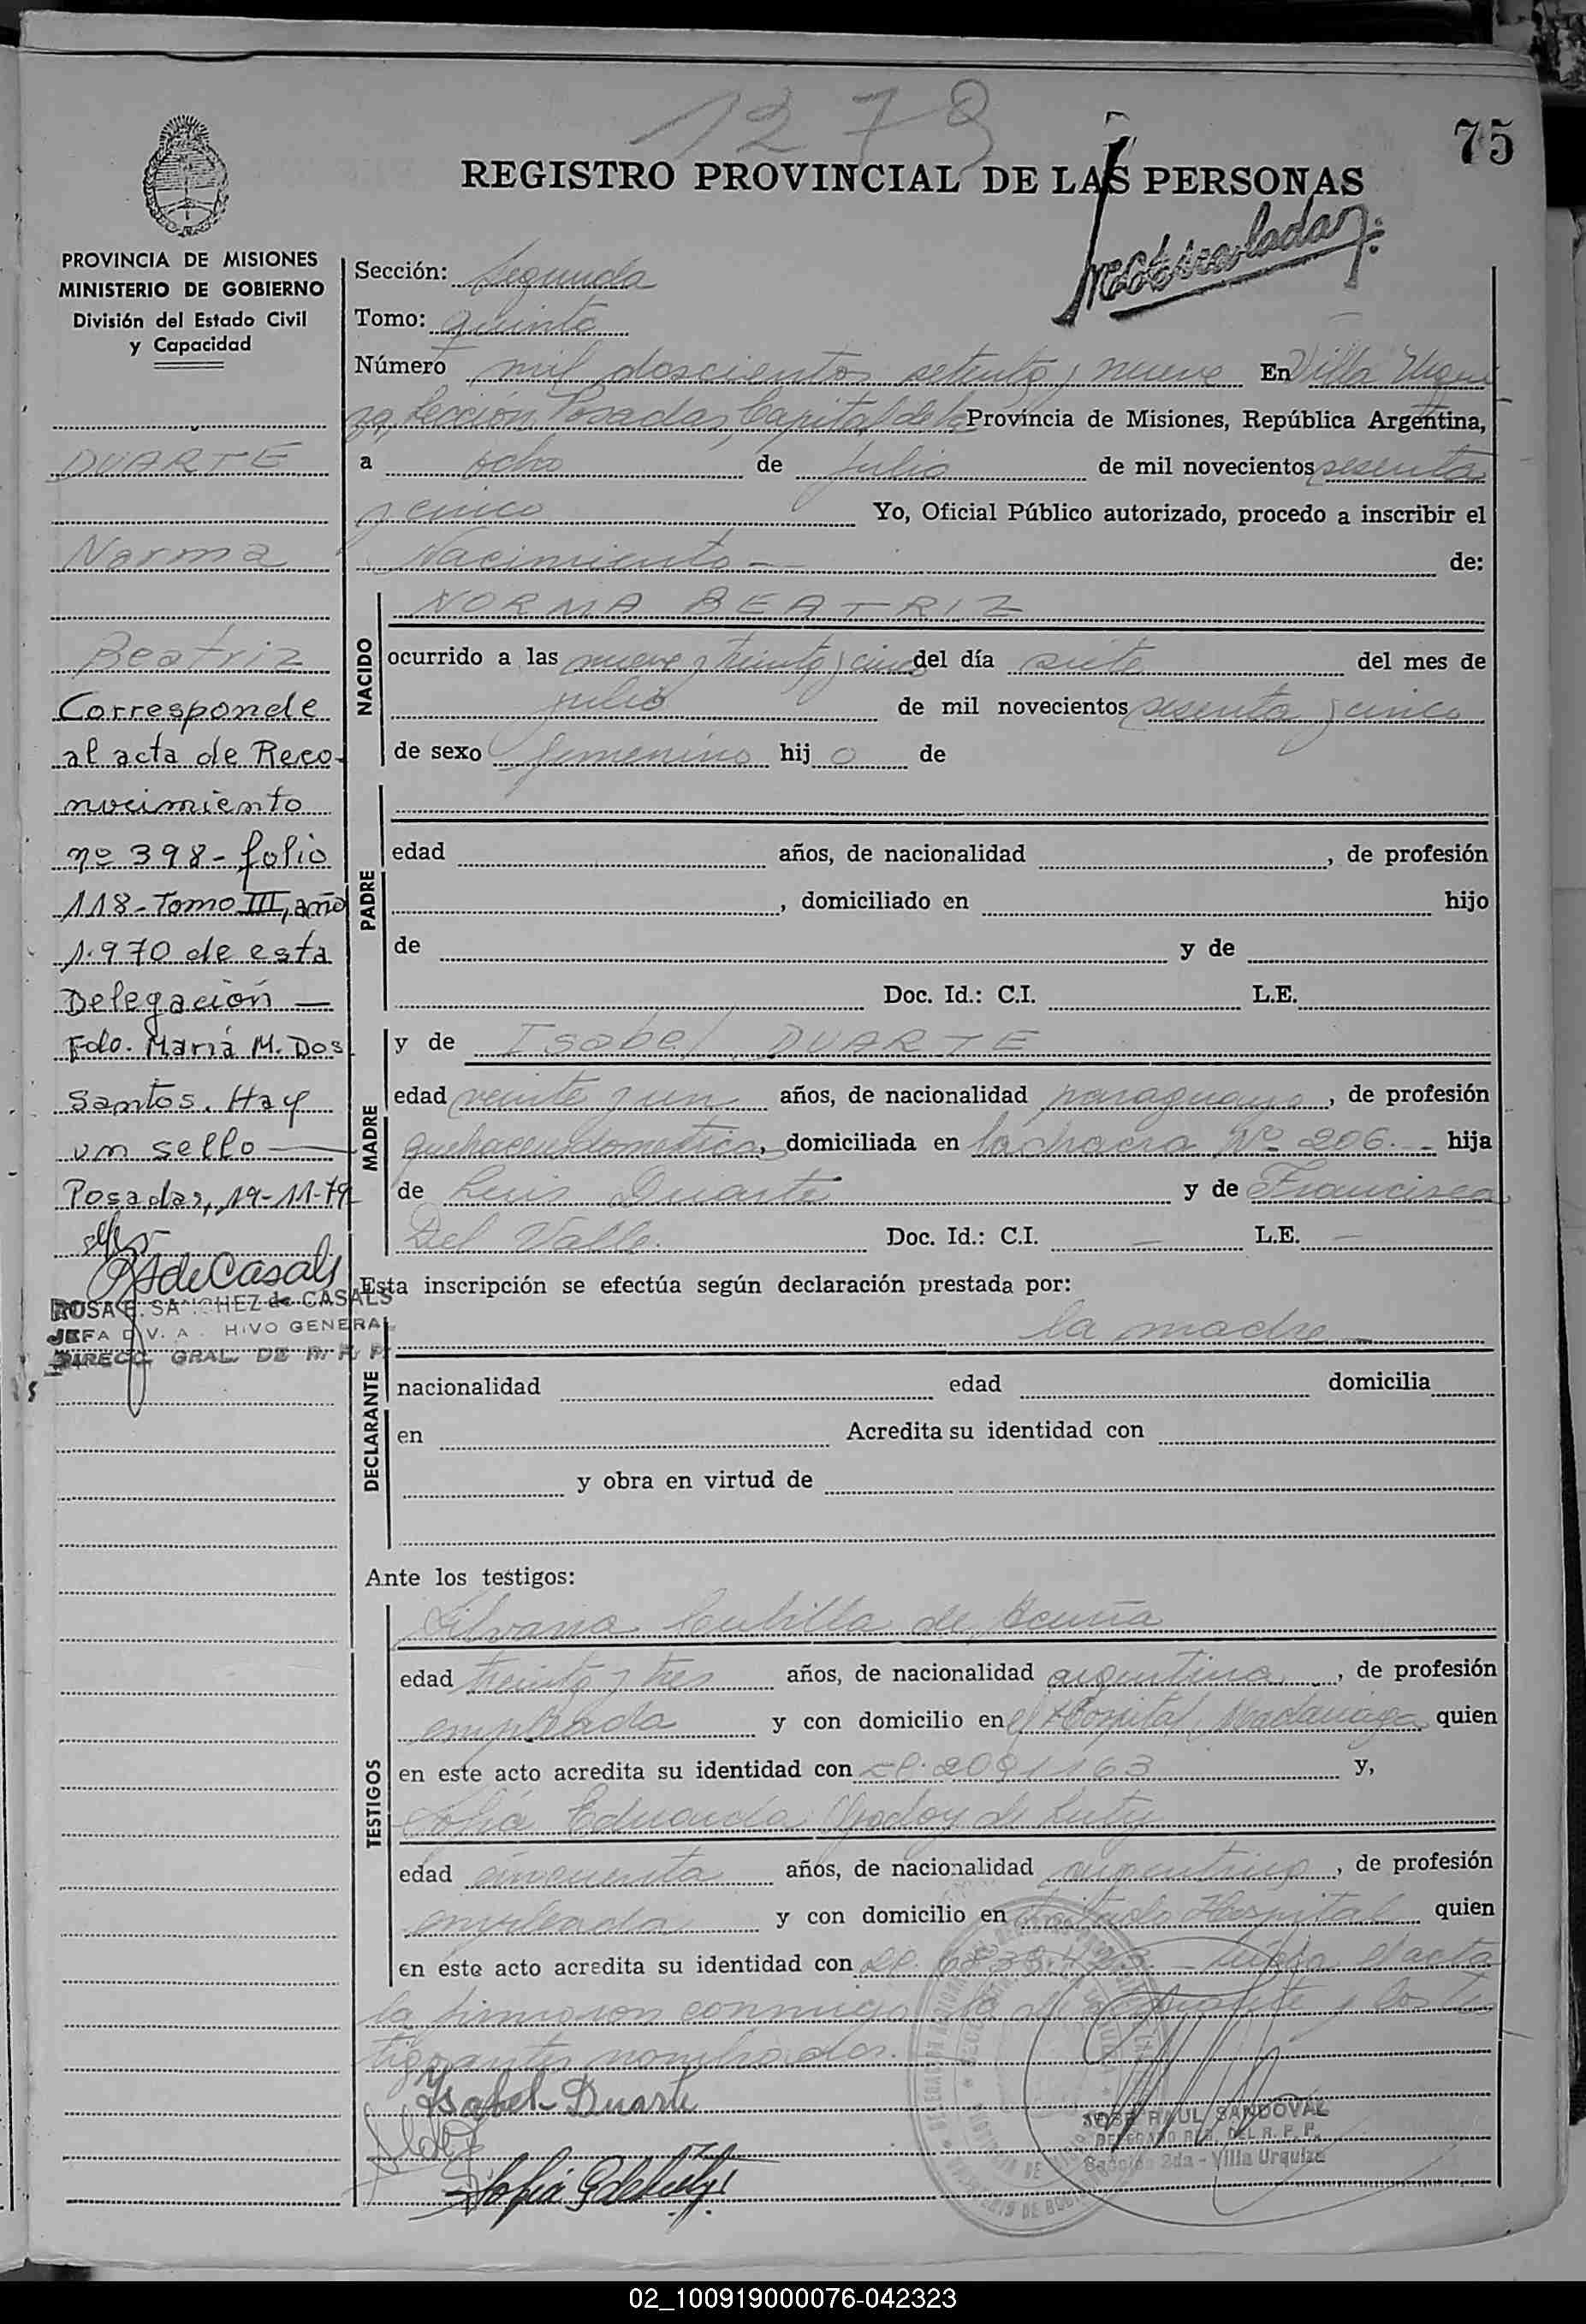 1279
75
REGISTRO PROVINCIAL DE LAS PERSONAS
PROVINCIA DE MISIONES
MINISTERIO DE GOBIERNO
División del Estado Civil
y Capacidad
DUARTE
Norma
Beatriz
Corresponde
al acta de Reco-
nocimiento
nº 398 - folio
118 - Tomo III, año
1.970 de esta
Delegación —
Fdo. María M. Dos
Santos. Hay
un sello —
Posadas, 19-11-79
RSdeCasals
ROSA E. SANCHEZ de CASALS
JEFA DIV. ARCHIVO GENERAL
DIRECC. GRAL. DE R. P. P.
Sección: Segunda
Tomo: quinto
Número mil doscientos setenta y nueve En Villa Urqui
za, Sección Posadas, Capital de la Provincia de Misiones, República Argentina,
a ocho de julio de mil novecientos sesenta
y cinco Yo, Oficial Público autorizado, procedo a inscribir el
Nacimiento — de:
NACIDO
NORMA BEATRIZ
ocurrido a las nueve y treinta y cinco del día siete del mes de
julio de mil novecientos sesenta y cinco
de sexo femenino hij o de
PADRE
edad años, de nacionalidad , de profesión
, domiciliado en hijo
de y de
Doc. Id.: C.I. L.E.
MADRE
y de Isabel DUARTE
edad veinte y un años, de nacionalidad paraguaya, de profesión
domiciliada en la chacra Nº 206. - hija
de Luis Duarte y de Francisca
Del Valle. Doc. Id.: C.I. — L.E. —
Esta inscripción se efectúa según declaración prestada por:
la madre —
DECLARANTE
nacionalidad edad domicilia
en Acredita su identidad con
y obra en virtud de
Ante los testigos:
TESTIGOS
Silvana Cubilla de Acuña
edad treinta y tres años, de nacionalidad argentina, de profesión
empleada y con domicilio en el Hospital Madariaga quien
en este acto acredita su identidad con 2091163 y,
Sofía Eduarda Godoy de
edad cincuenta años, de nacionalidad argentina, de profesión
empleada y con domicilio en Hospital quien
en este acto acredita su identidad con el acta
la firmaron conmigo la y los tes
tigos antes nombrados.
Ysabel Duarte
JOSE RAUL SANDOVAL
DELEGADO REG. DEL R. P. P.
Sección 2da - Villa Urquiza
02_100919000076-042323